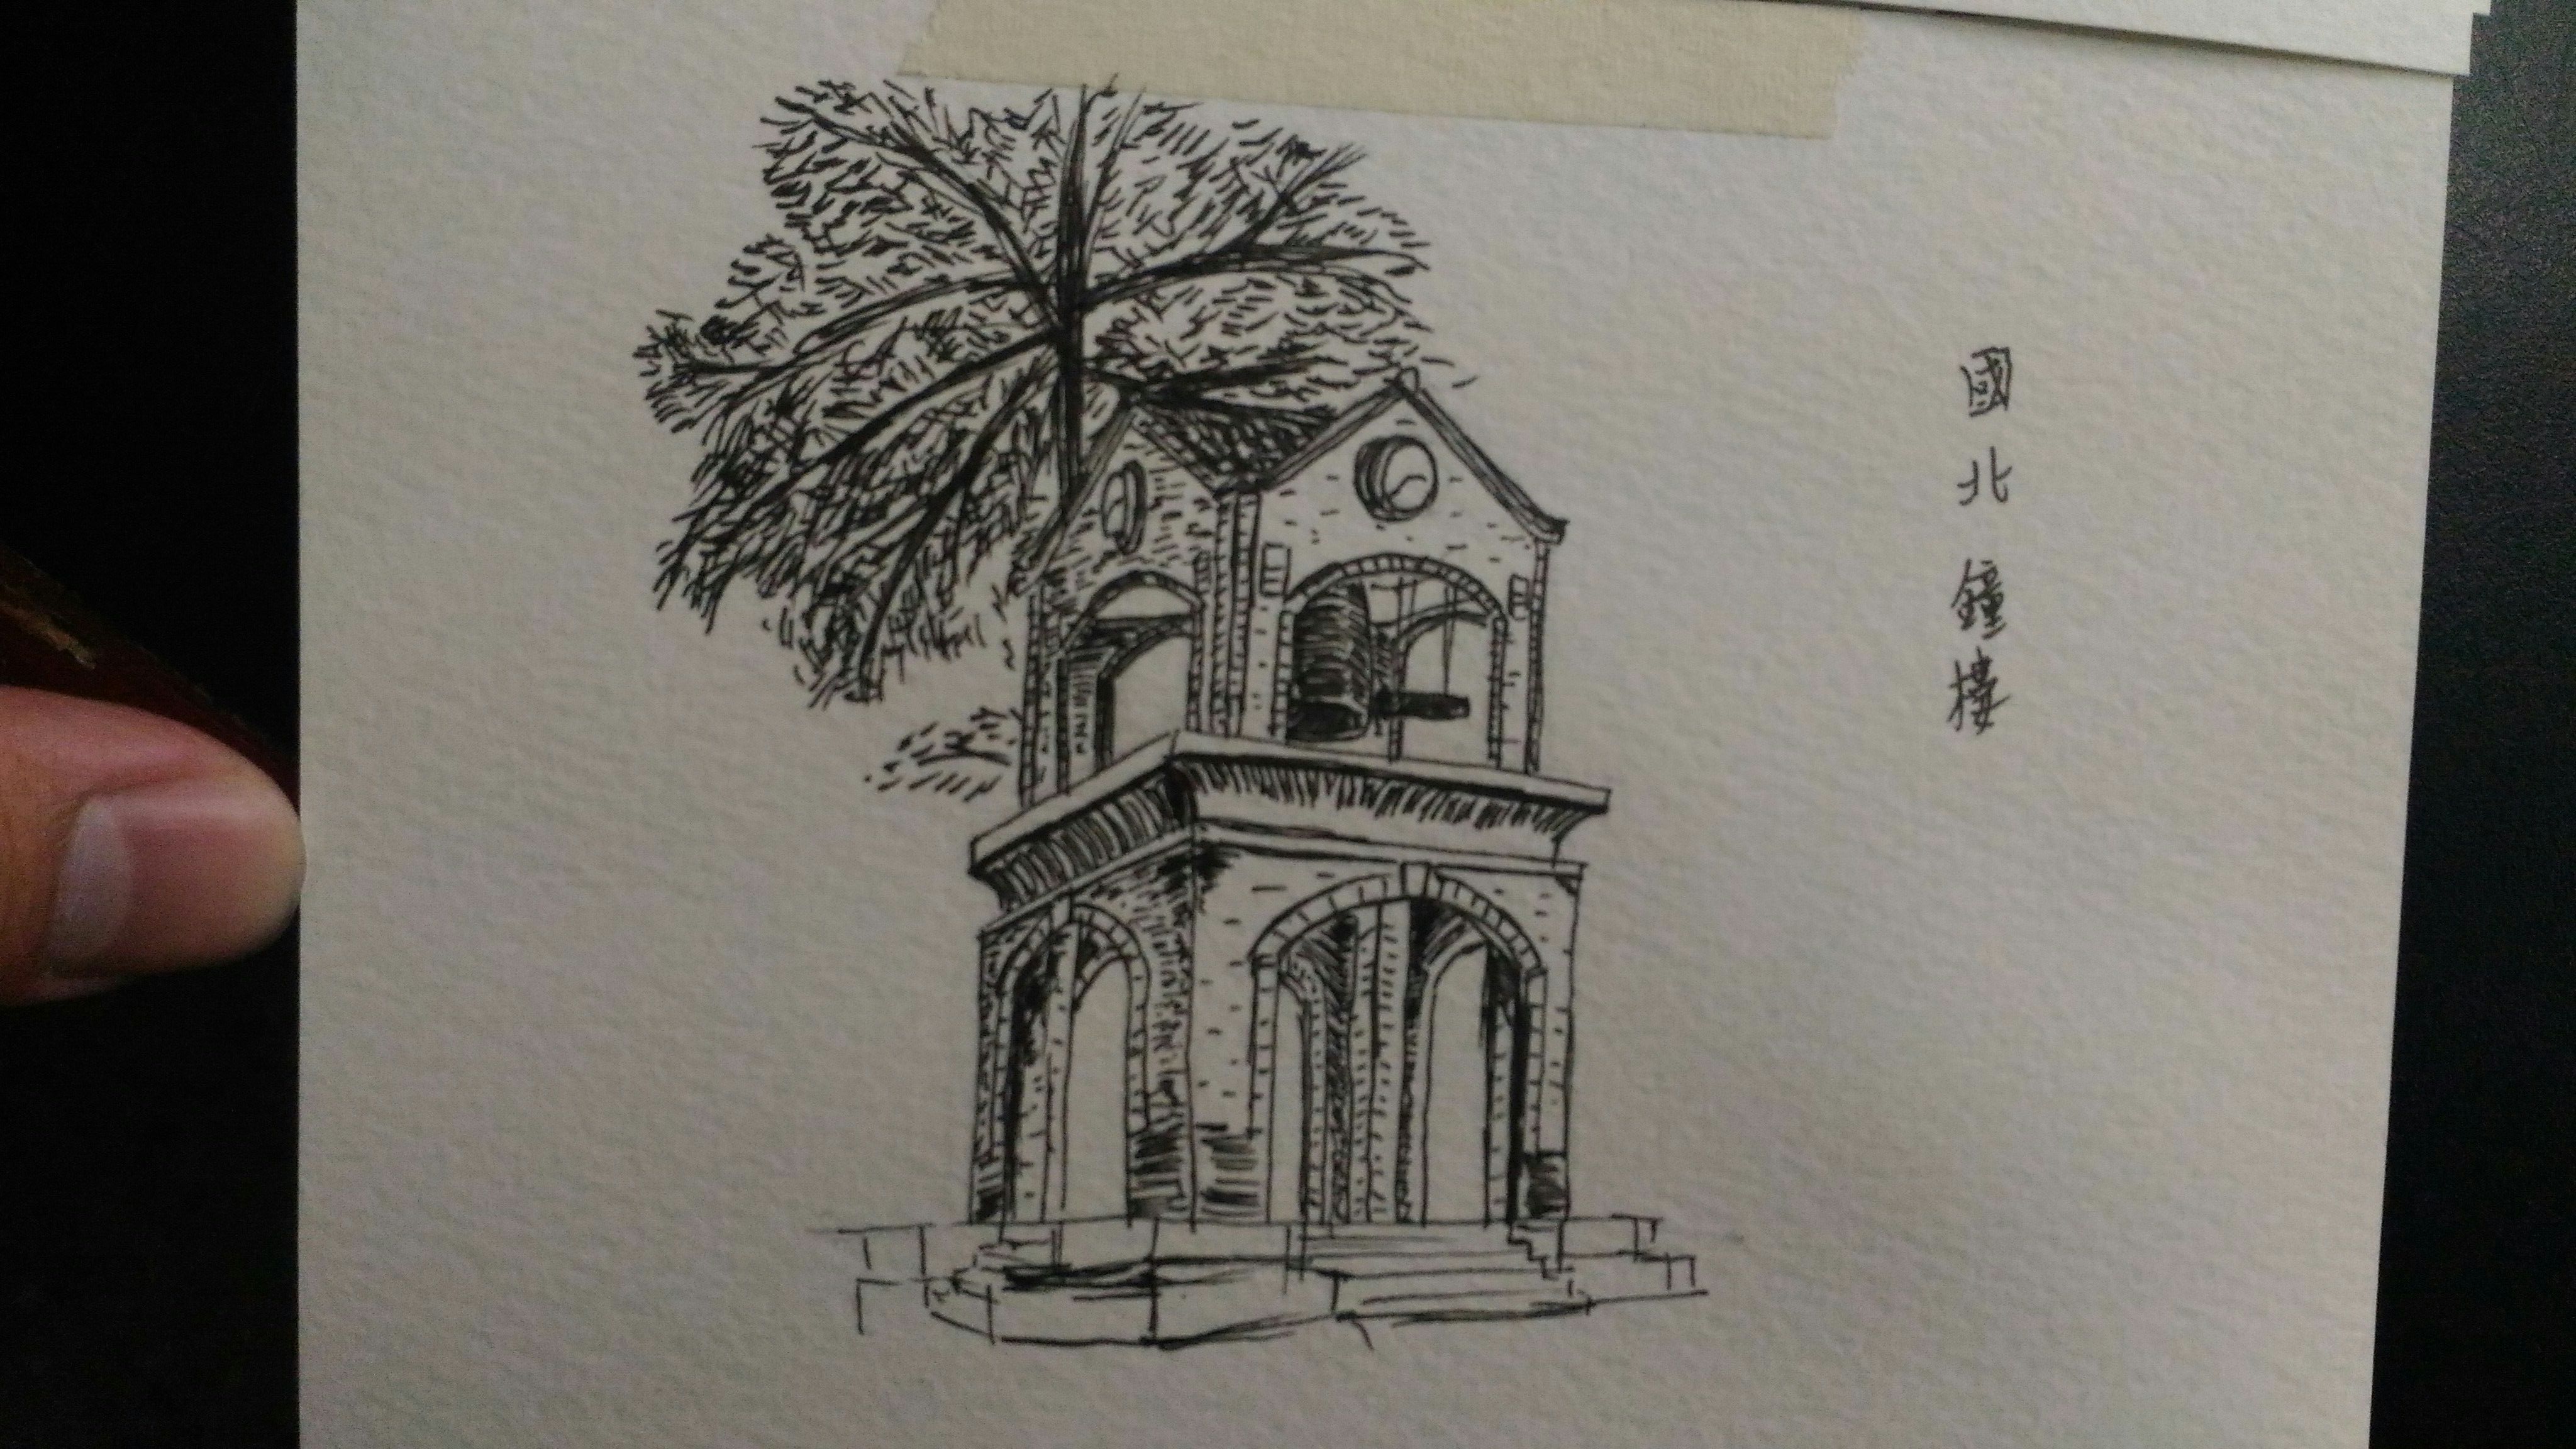 國北鐘樓